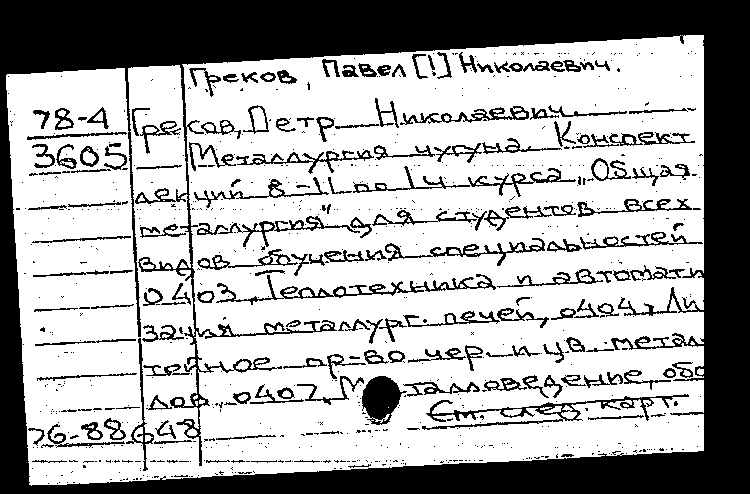 Греков, Павел [!] Николаевич.
78-4 Греков, Петр Николаевич.
3605 Металлургия чугуна. Конспект
лекций 8-11 по 1ч курса „Общая
металлургия" для студентов всех
видов обучения специальностей
0403, Теплотехника и автомати
зация металлург. печей, 0404, Ли
тейное пр-во чер. и цв. метал
лов, 0407, М талловедение, обо
См. след. карт.
76-88648